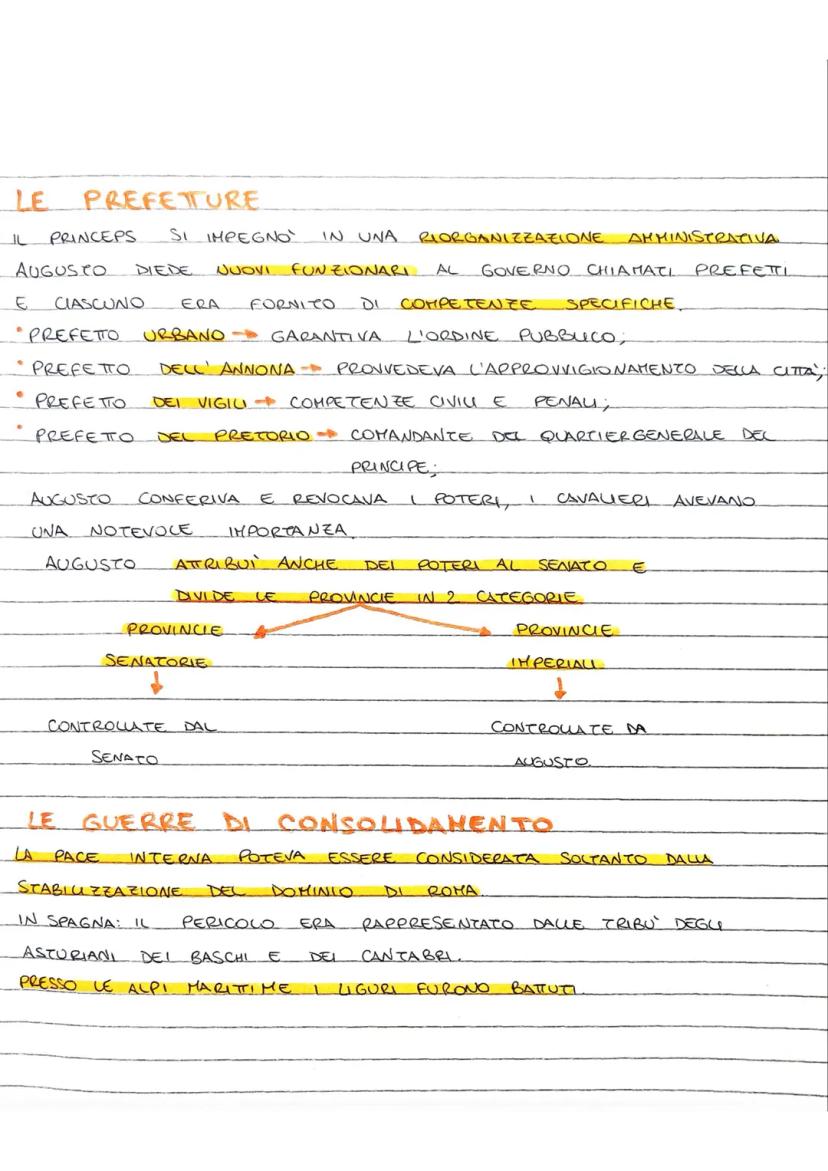 LE PREFETTURE
IL PRINCEPS SI IMPEGNO' IN UNA RIORGANIZZAZIONE AMMINISTRATIVA
AUGUSTO DIEDE NUOVI FUNZIONARI AL GOVERNO CHIAMATI PREFETTI
E CIASCUNO ERA FORNITO DI COMPETENZE SPECIFICHE.
• PREFETTO URBANO → GARANTIVA L'ORDINE PUBBLICO;
• PREFETTO DELL'ANNONA → PROVVEDEVA L'APPROVVIGIONAMENTO DELLA CITTA';
• PREFETTO DEI VIGILI → COMPETENZE CIVILI E PENALI;
• PREFETTO DEL PRETORIO → COMANDANTE DEL QUARTIER GENERALE DEL
PRINCIPE;
AUGUSTO CONFERIVA E REVOCAVA I POTERI, I CAVALIERI AVEVANO
UNA NOTEVOLE IMPORTANZA.
AUGUSTO ATTRIBUI' ANCHE DEI POTERI AL SENATO E
DIVIDE LE PROVINCIE IN 2 CATEGORIE
PROVINCIE PROVINCIE
SENATORIE IMPERIALI
CONTROLLATE DAL CONTROLLATE DA
SENATO AUGUSTO.
LE GUERRE DI CONSOLIDAMENTO
LA PACE INTERNA POTEVA ESSERE CONSIDERATA SOLTANTO DALLA
STABILIZZAZIONE DEL DOMINIO DI ROMA.
IN SPAGNA: IL PERICOLO ERA RAPPRESENTATO DALLE TRIBU' DEGLI
ASTURIANI DEI BASCHI E DEI CANTABRI.
PRESSO LE ALPI MARITTIME I LIGURI FURONO BATTUTI